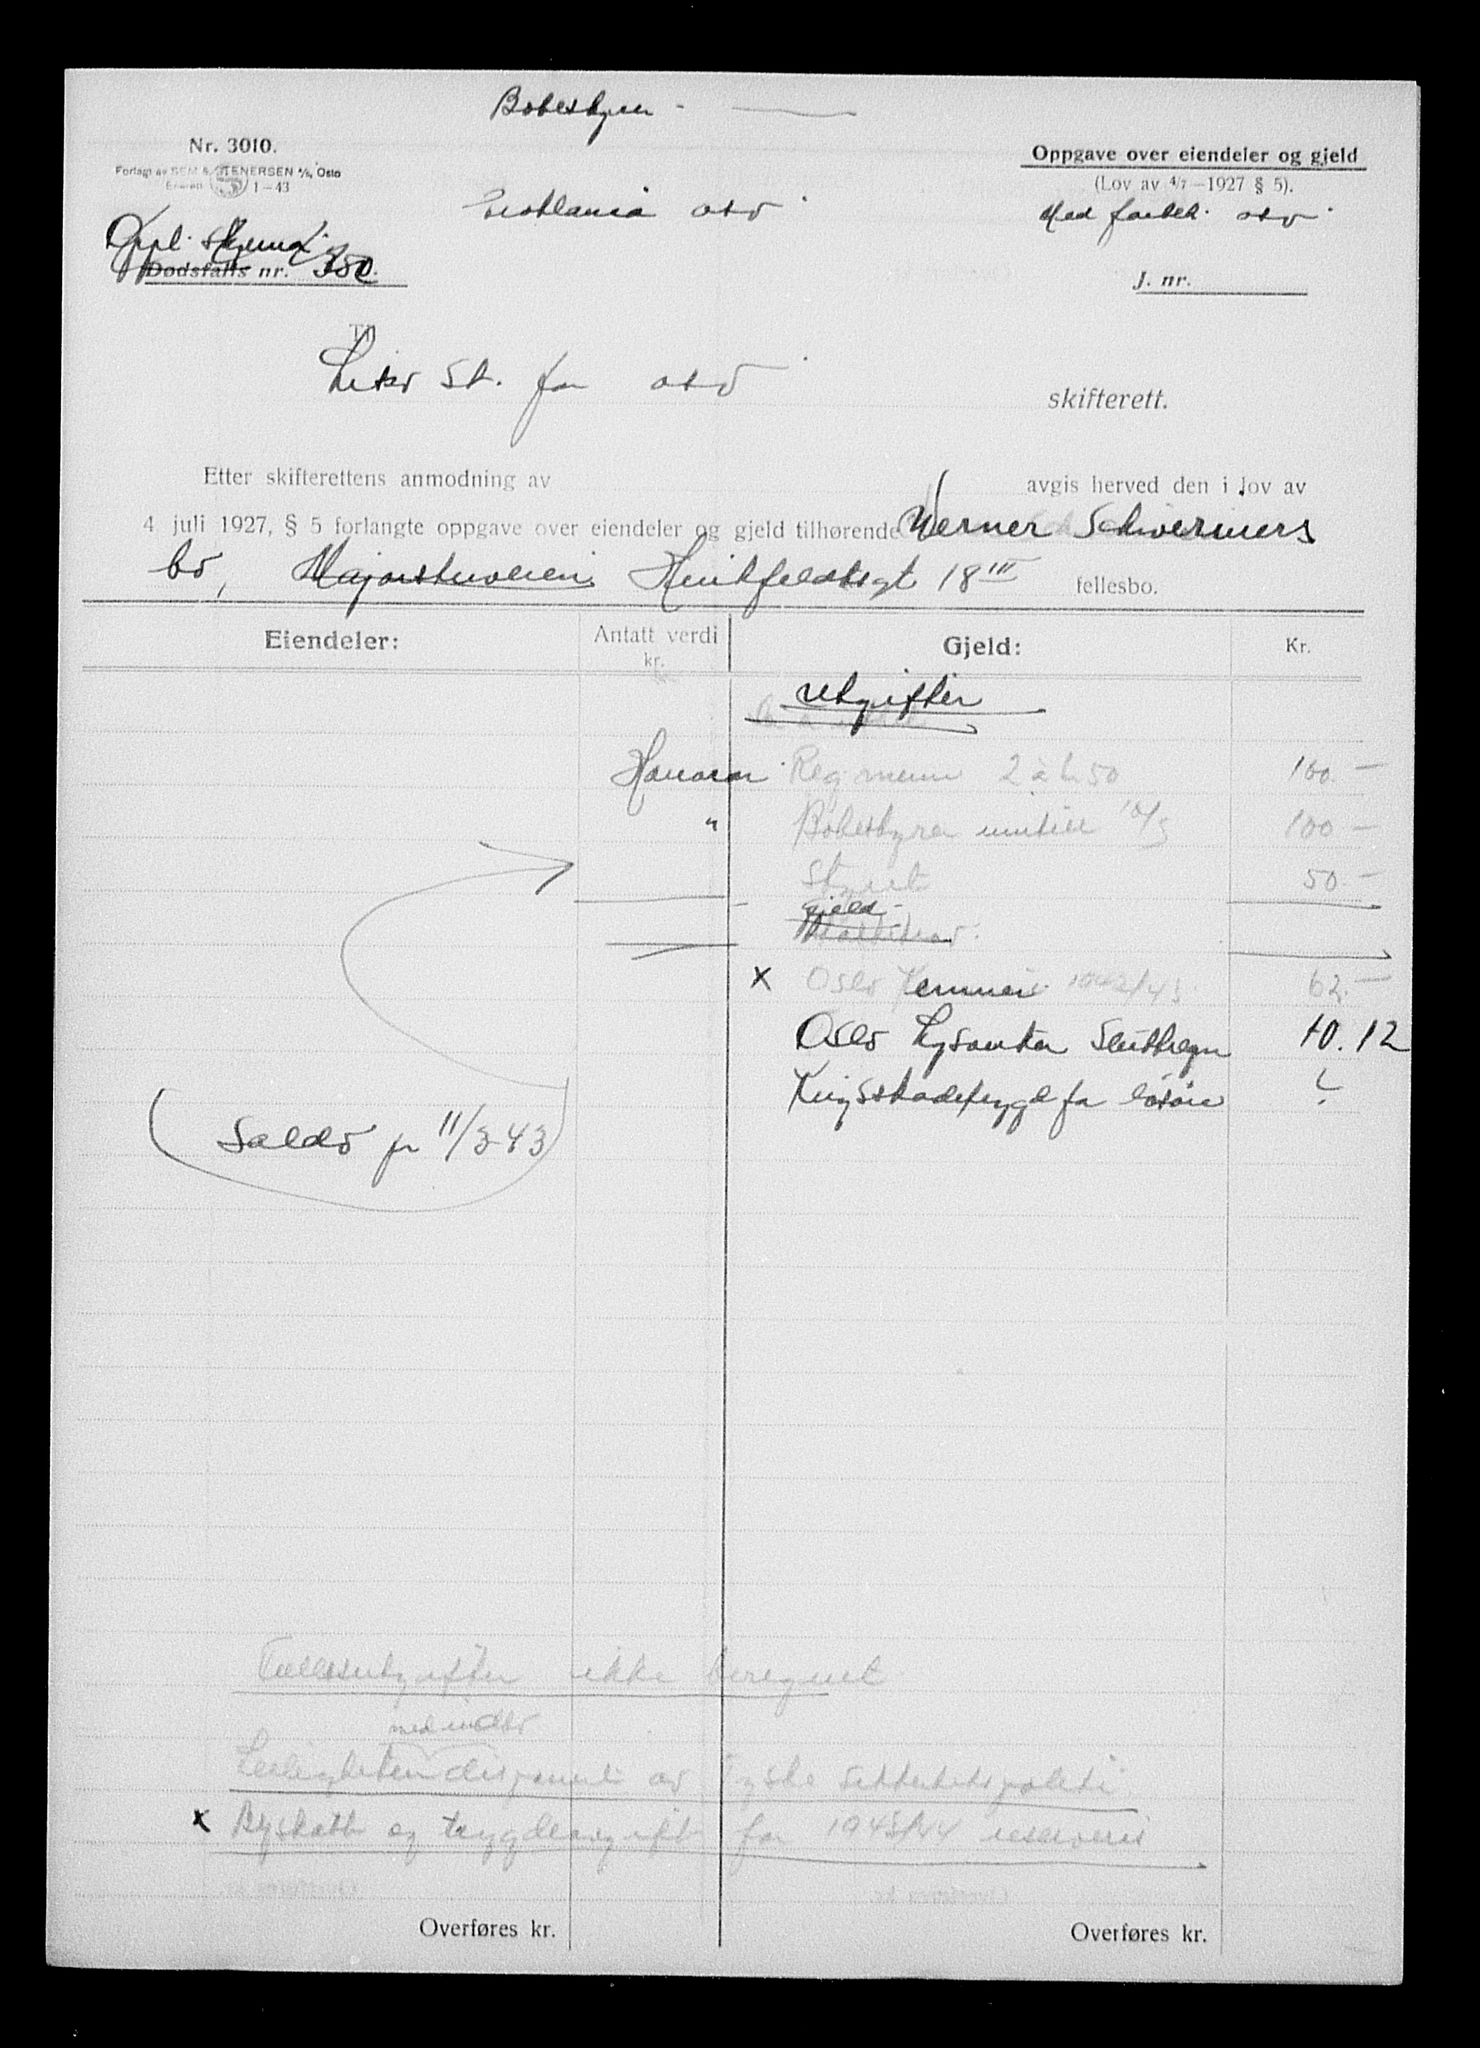 Bobestyrer -
Nr. 3010.
Forlagt av SEM & STENERSEN A/S, Oslo
Enerett 1-43
Oppgave over eiendeler og gjeld
(Lov av 4/7-1927 § 5).
Med forbeh. osv
osv
Oppl. skjema
Dødsfalls nr. 350.
J. nr.
Til
Likv St. for osv
skifterett.
Etter skifterettens anmodning av avgis herved den i lov av
4 juli 1927, § 5 forlangte oppgave over eiendeler og gjeld tilhørende Werner Schwermers
bo, Majorstuveien Huitfeldtsgt 18 III fellesbo.
Eiendeler: Antatt verdi kr. Gjeld: Kr.
Utgifter
Honorar Reg. menn 2 à kr 50 100.-
" Bobestyrer inntill 10/5 100-
Styret 50.-
gjeld-
x Oslo Kemner 1942/43 62.-
Oslo Lysverker Sluttregn 10.12
Krigsskadetrygd for løsøre ?
(Saldo pr 11/3-43)
Fællesutgifter ikke beregnet
med innbo
Leiligheten disponert av Tyske Sikkerhetspoliti
x Byskatt og trygdeavgift for 1943/44 reserveres
Overføres kr. Overføres kr.